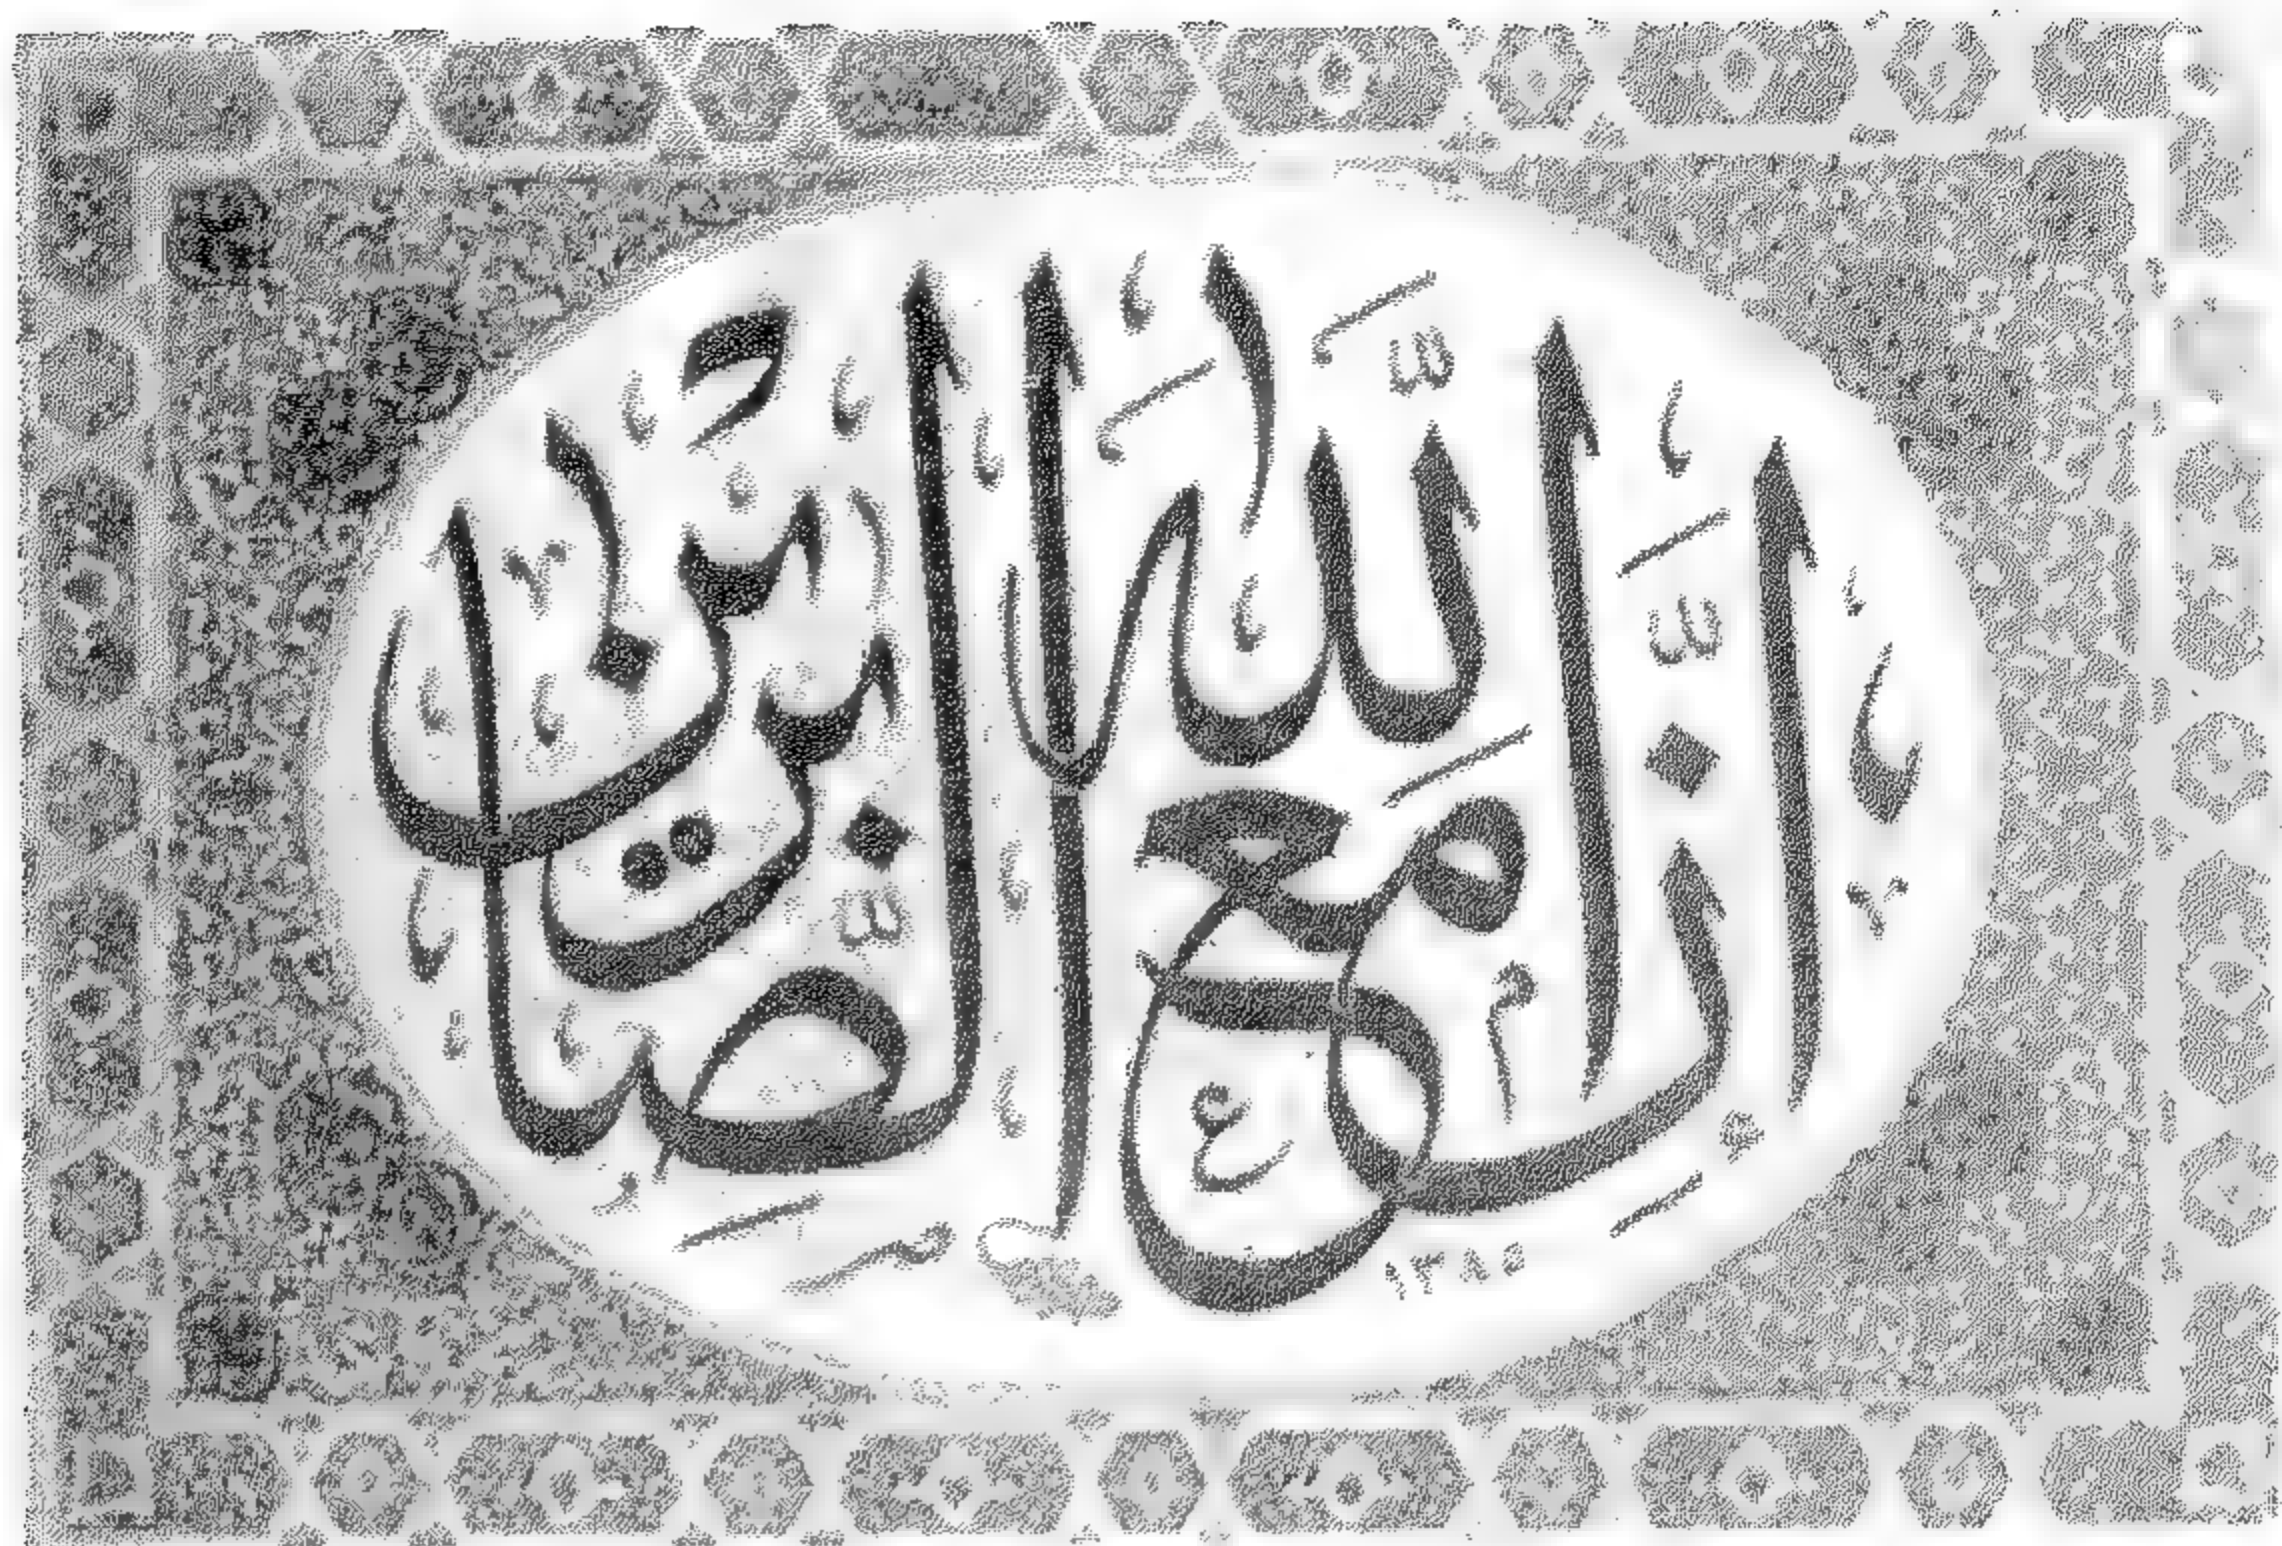 إن الله مع الصابرين
١٣٨٥